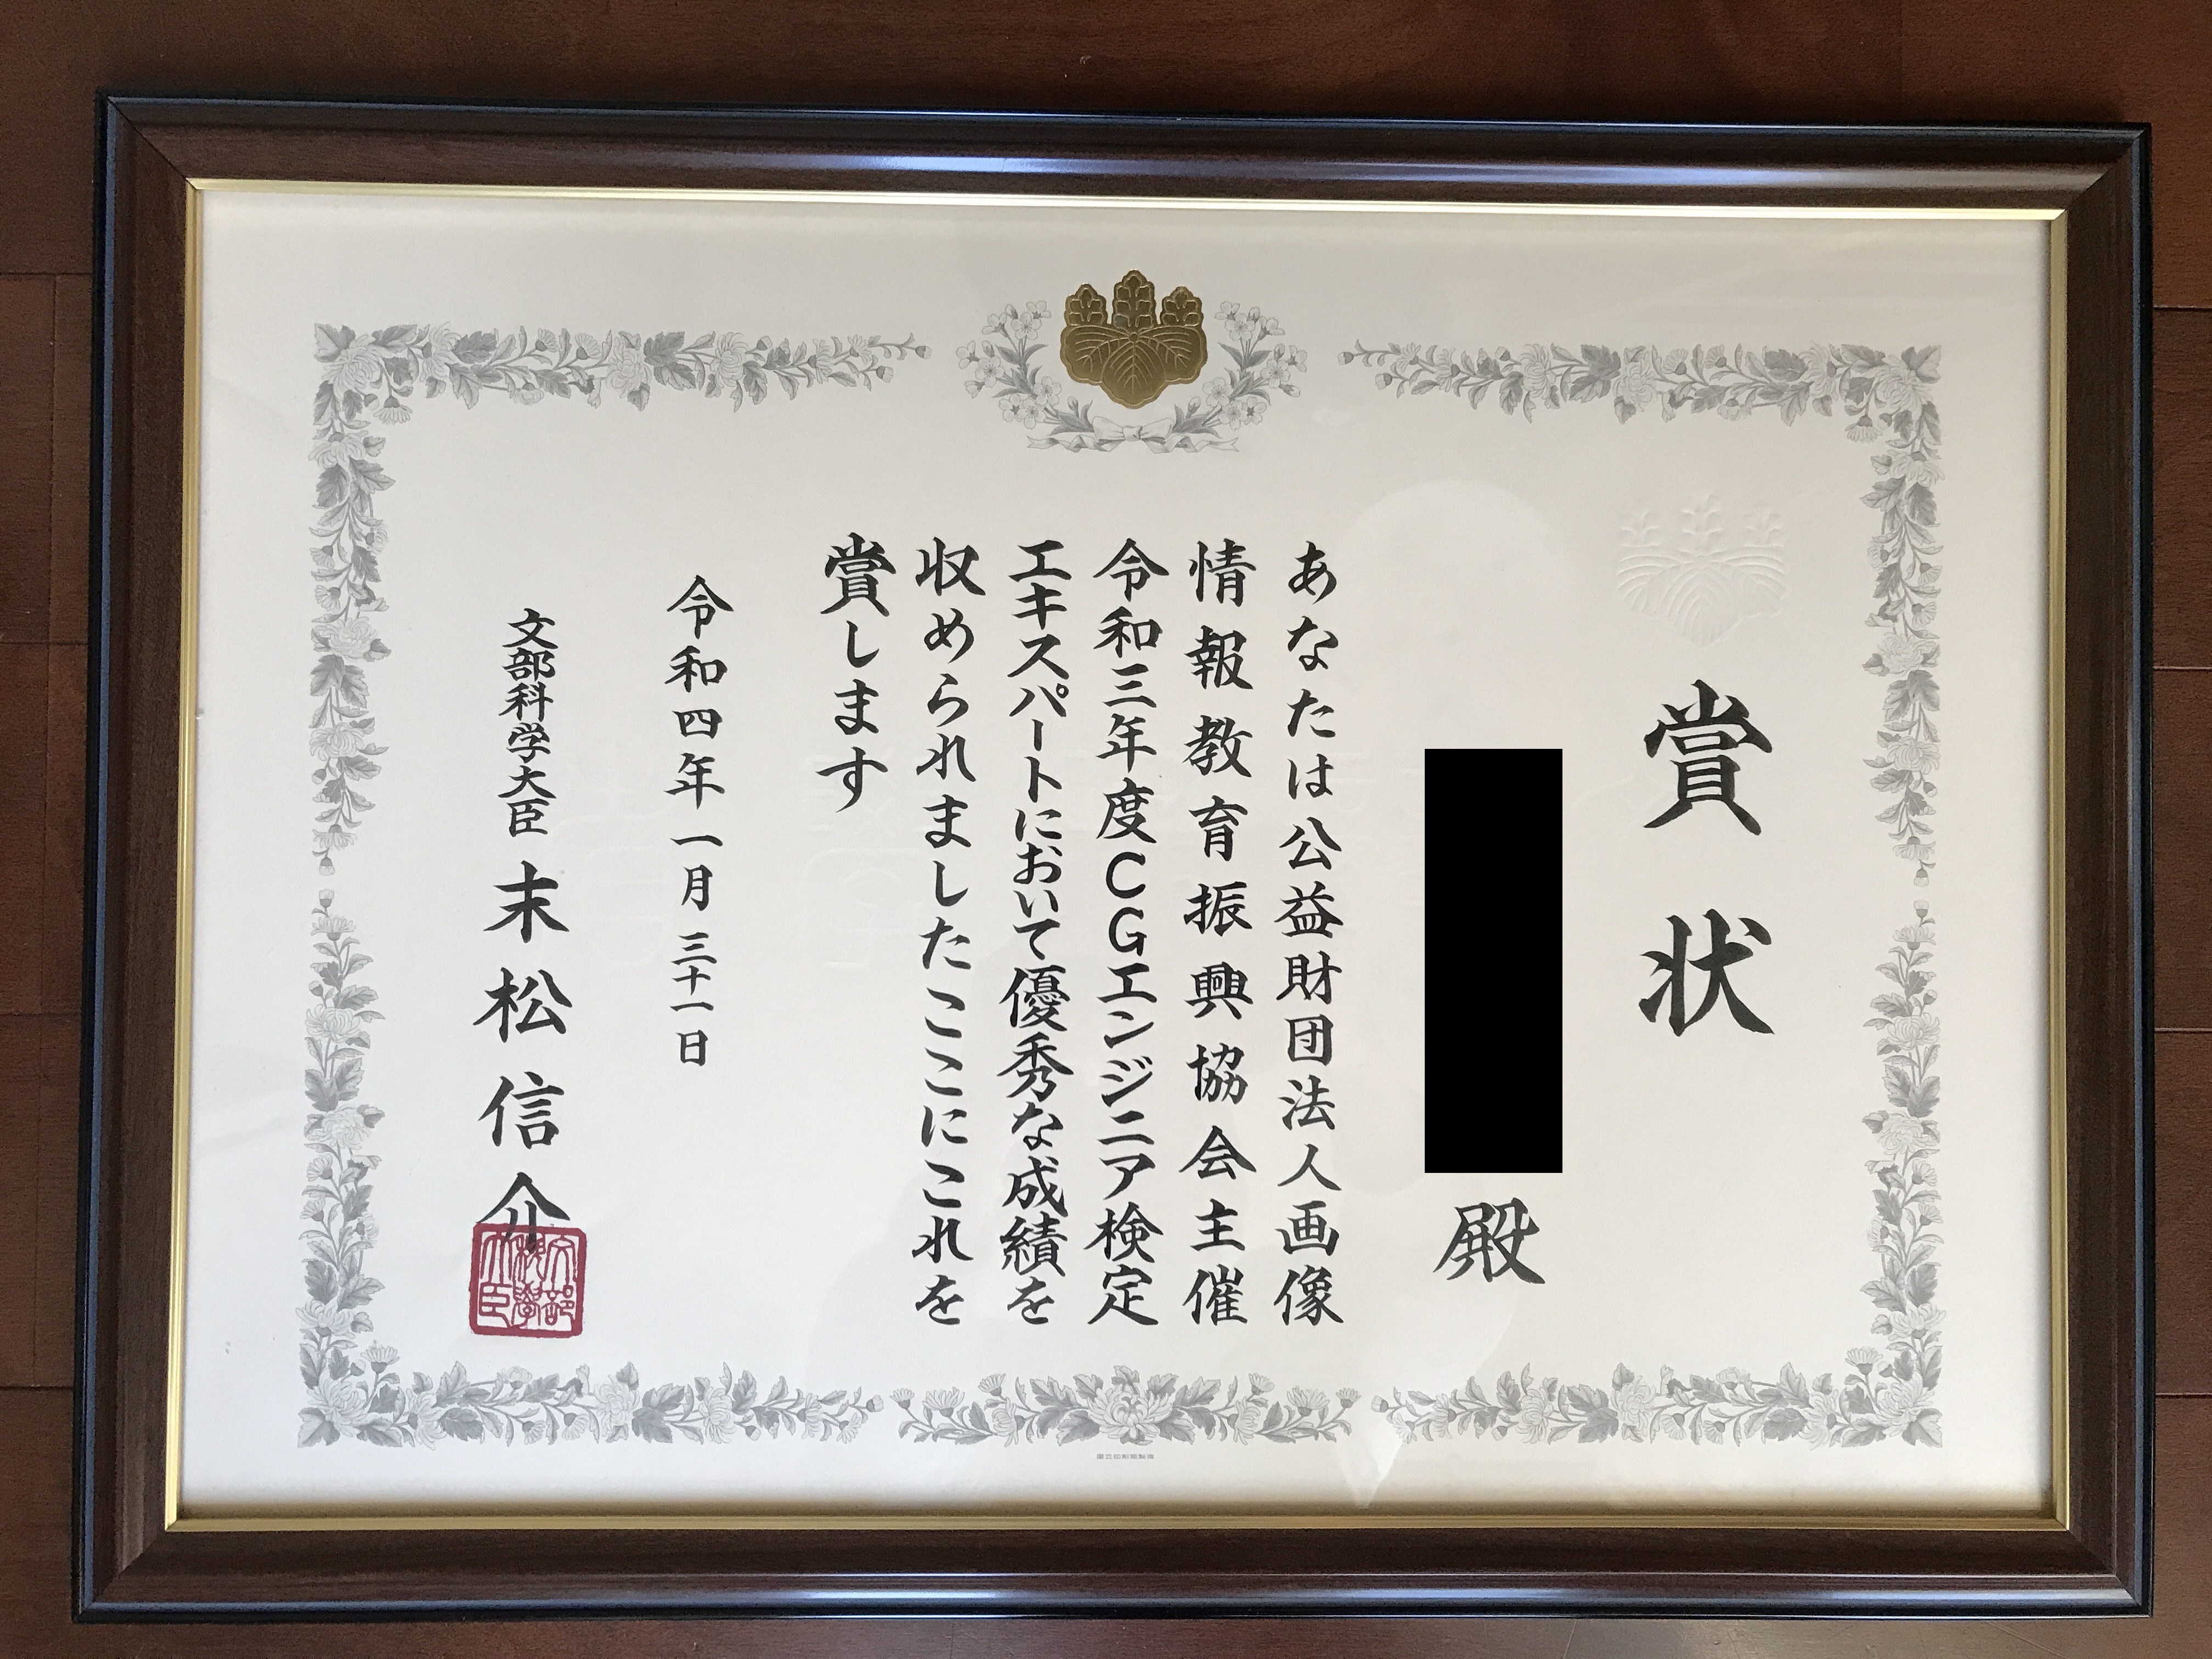 賞状
殿
あなたは公益財団法人画像
情報教育振興協会主催
令和三年度CGエンジニア検定
エキスパートにおいて優秀な成績を
収められましたここにこれを
賞します
令和四年一月三十一日
文部科学大臣 末松信介
文部科学大臣
国立印刷局製造